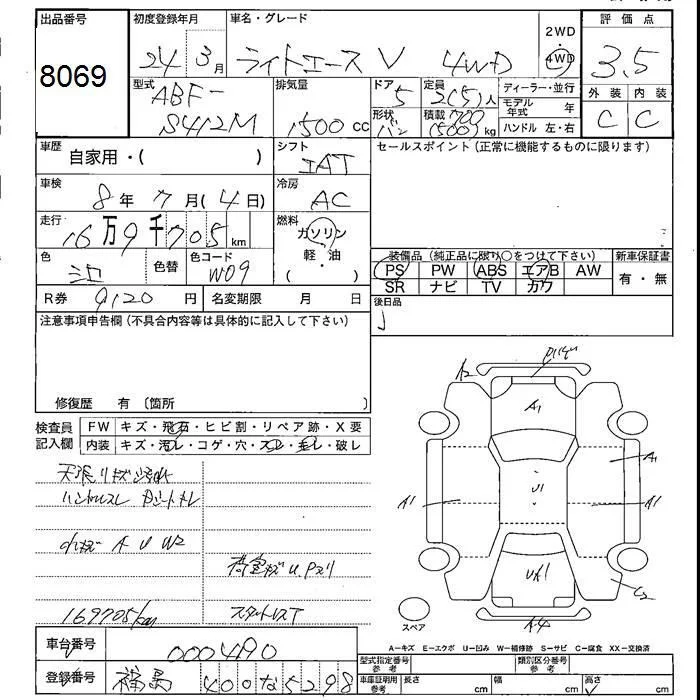 出品番号
8069
初度登録年月
24年3月
車名・グレード
ライトエースV 4WD
2WD
・
4WD
評価点
3.5
外装 内装
C C
型式
ABF-
S412M
排気量
1500 cc
ドア
5
形状
バン
定員
2(5)人
積載 700
(500) kg
ディーラー・並行
モデル年式 年
ハンドル 左・右
車歴
自家用・( )
シフト
IAT
セールスポイント (正常に機能するものに限ります)
車検
8年 7月(4日)
冷房
AC
走行
16万9千705 km
燃料
ガソリン
軽・油
( )
色
シロ
色替
色コード
W09
装備品(純正品に限り○をつけて下さい)
PS PW ABS エアB AW
SR ナビ TV カワ
新車保証書
有・無
R券 9120 円
名変期限 月 日
後日品
注意事項申告欄(不具合内容等は具体的に記入して下さい)
修復歴 有 〔箇所 〕
検査員
記入欄
FW キズ・飛石・ヒビ割・リペア跡・X要
内装 キズ・汚レ・コゲ・穴・スレ・歪レ・破レ
天張リキズ 汚れ
ハンドルスレ
小キズ A U W2
荷室キズU
169705km
A2
A1
A1
A1
U1
A1
UA1
C2
A4
スペア
A=キズ E=エクボ U=凹ミ W=補修跡 S=サビ C=腐食 XX=交換済
車台番号 0004190
登録番号 福島 400 な 5298
型式指定番号 参考
類別区分番号 参考
車庫証明用 参考 長さ cm 幅 cm 高さ cm